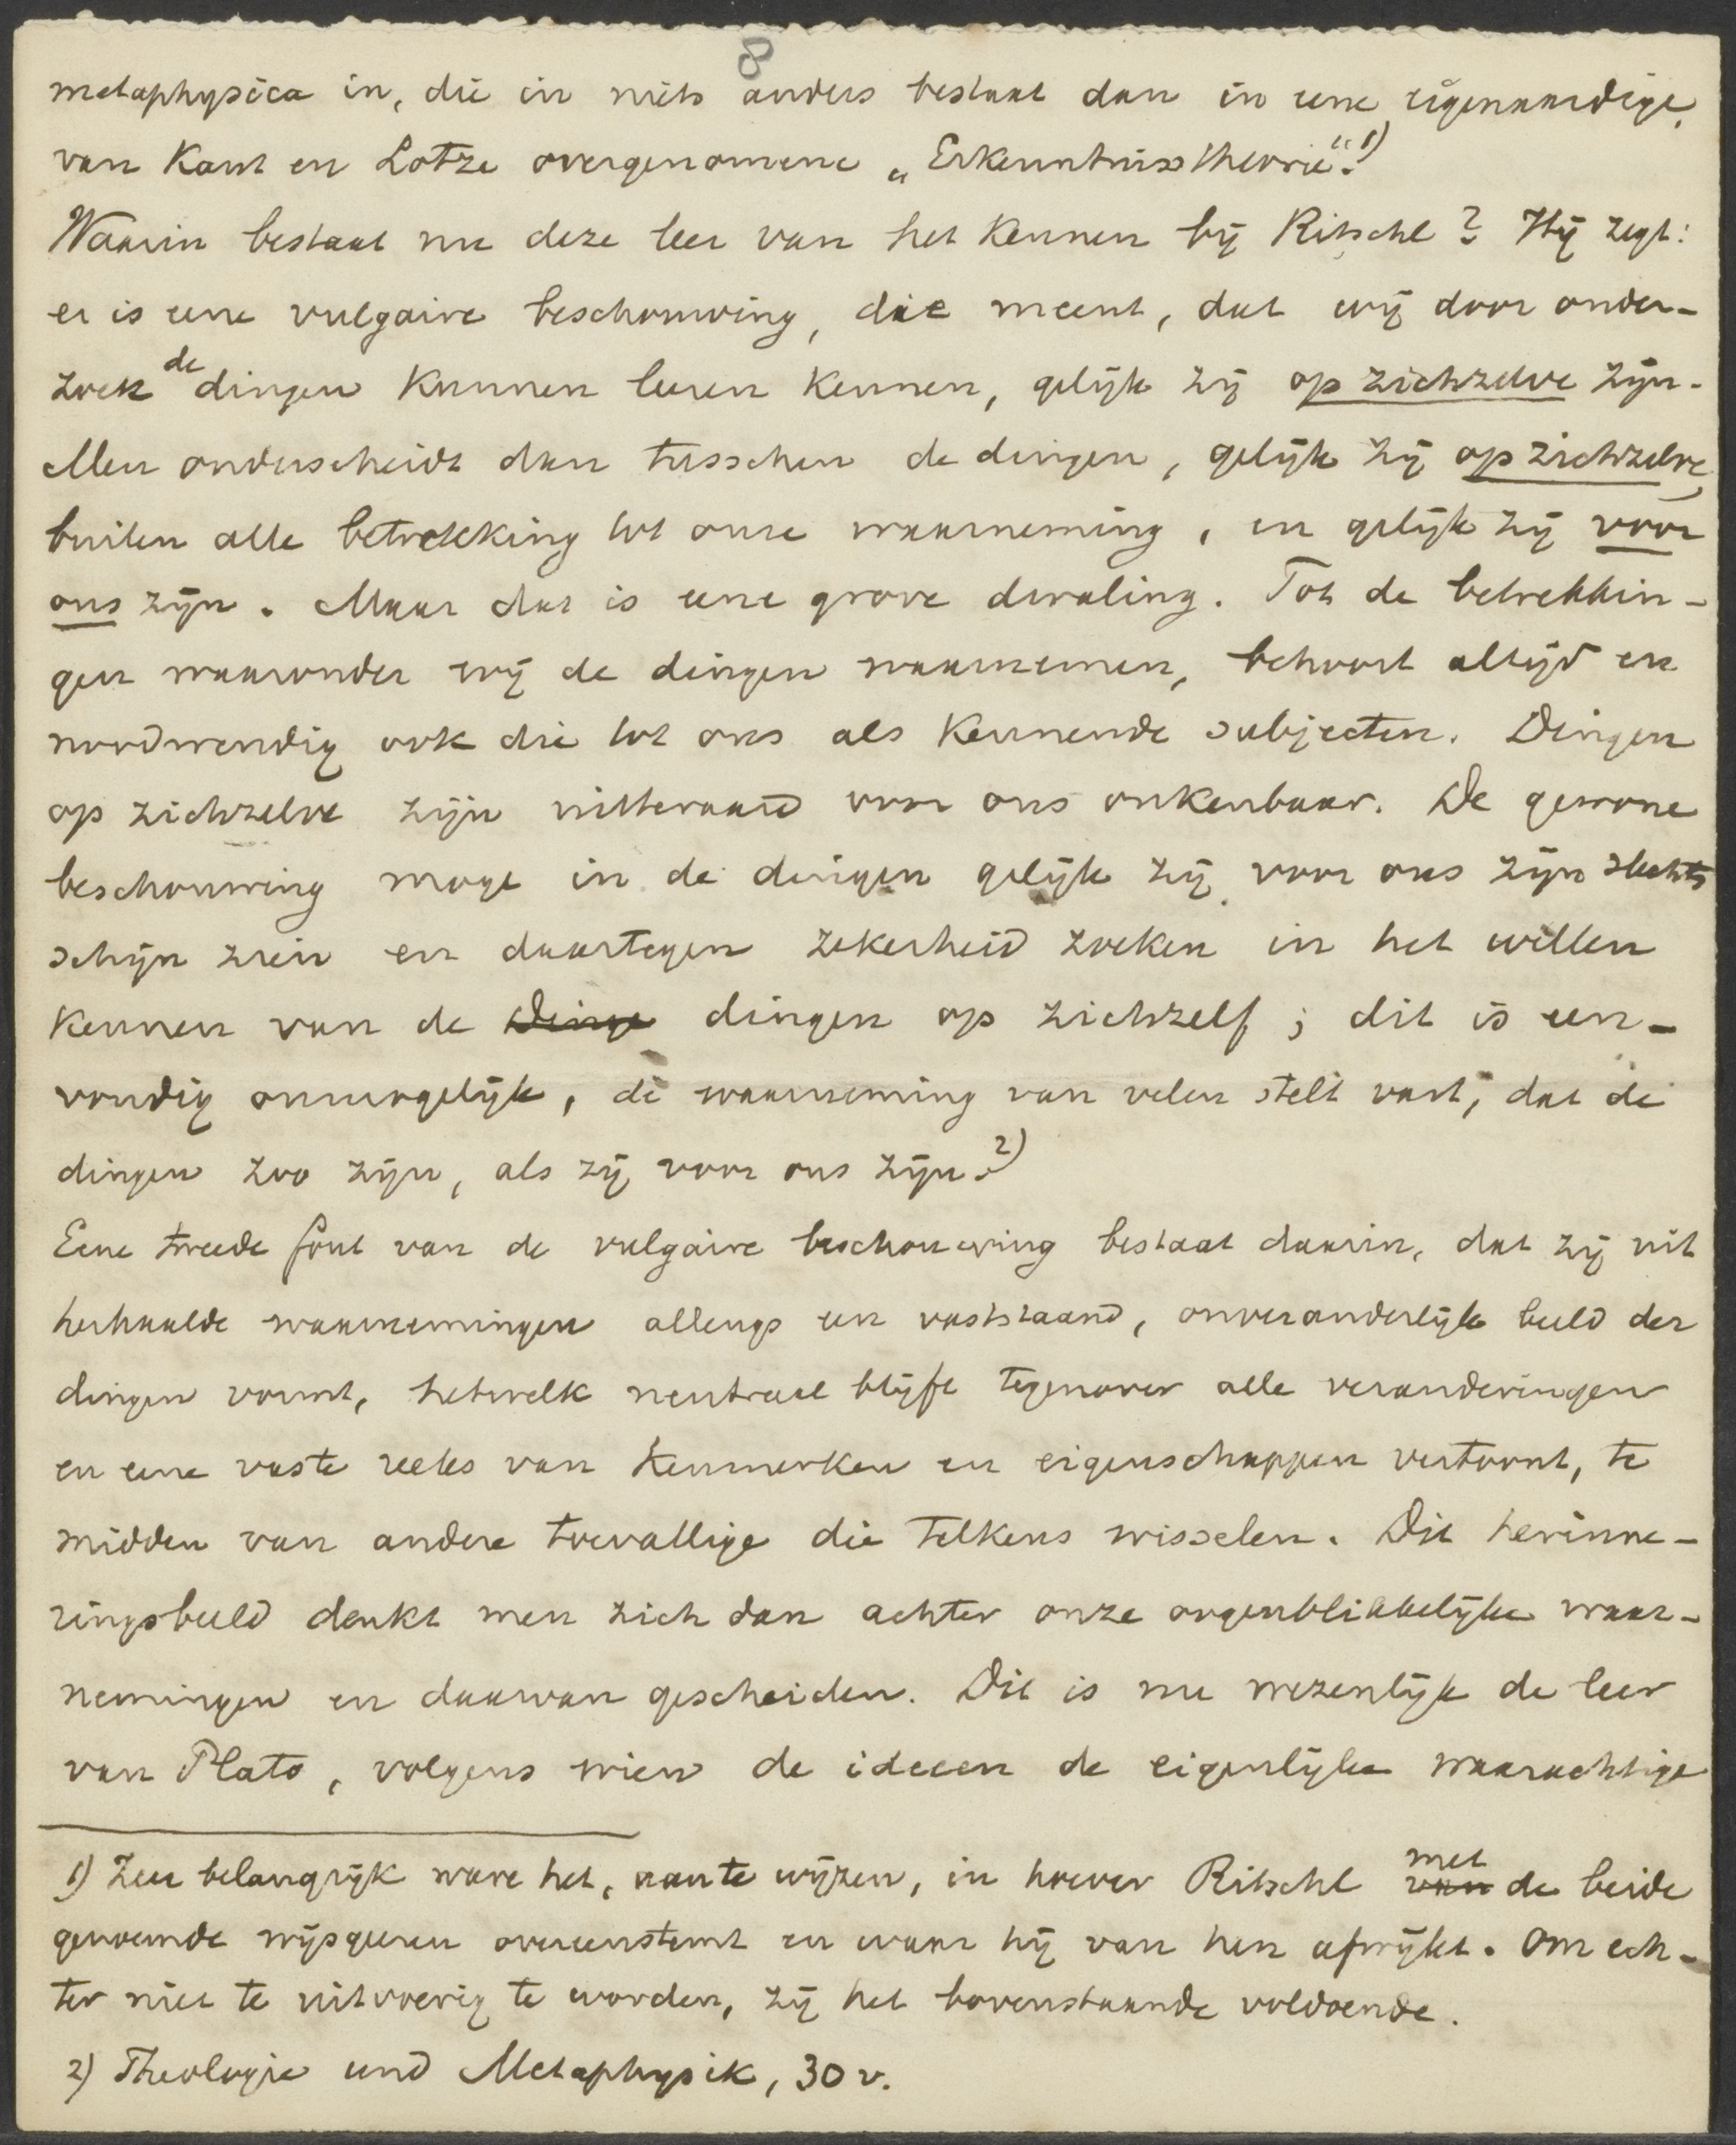 8
metaphysica in, die in niets anders bestaat dan in eene eigenaardige,
van Kant en Lotze overgenomene „Erkenntnisstheorie".1)
Waarin bestaat nu deze leer van het kennen bij Ritschl? Hij zegt:
er is eene vulgaire beschouwing, die meent, dat wij door onder-
zoek de dingen kunnen leeren kennen, gelijk zij op zichzelve zijn.
Men onderscheidt dan tusschen de dingen, gelijk zij op zichzelve,
buiten alle betrekking tot onze waarneming, en gelijk zij voor
ons zijn. Maar dat is eene grove dwaling. Tot de betrekkin-
gen waaronder wij de dingen waarnemen, behoort altijd en
noodwendig ook die tot ons als kennende subjecten. Dingen
op zichzelve zijn uitteraard voor ons onkenbaar. De gewone
beschouwing moge in de dingen gelijk zij voor ons zijn slechts
schijn zien en daartegen zekerheid zoeken in het willen
kennen van de Dinge dingen op zichzelf; dit is een-
voudig onmogelijk, de waarneming van velen stelt vast, dat de
dingen zoo zijn, als zij voor ons zijn.2)
Eene tweede fout van de vulgaire beschouwing bestaat daarin, dat zij uit
herhaalde waarnemingen allengs een vaststaand, onveranderlijk beeld der
dingen vormt, hetwelk neutraal blijft tegenover alle veranderingen
en eene vaste reeks van kenmerken en eigenschappen vertoont, te
midden van andere toevallige die telkens wisselen. Dit herinne-
ringsbeeld denkt men zich dan achter onze oogenblikkelijke waar-
nemingen en daarvan gescheiden. Dit is nu wezenlijk de leer
van Plato, volgens wien de ideeen de eigenlijke waarachtige
1) Zeer belangrijk ware het, aan te wijzen, in hoever Ritschl van met de beide
genoemde wijsgeeren overeenstemt en waar hij van hen afwijkt. Om ech-
ter niet te uitvoerig te worden, zij het bovenstaande voldoende.
2) Theologie und Metaphysik, 30 v.